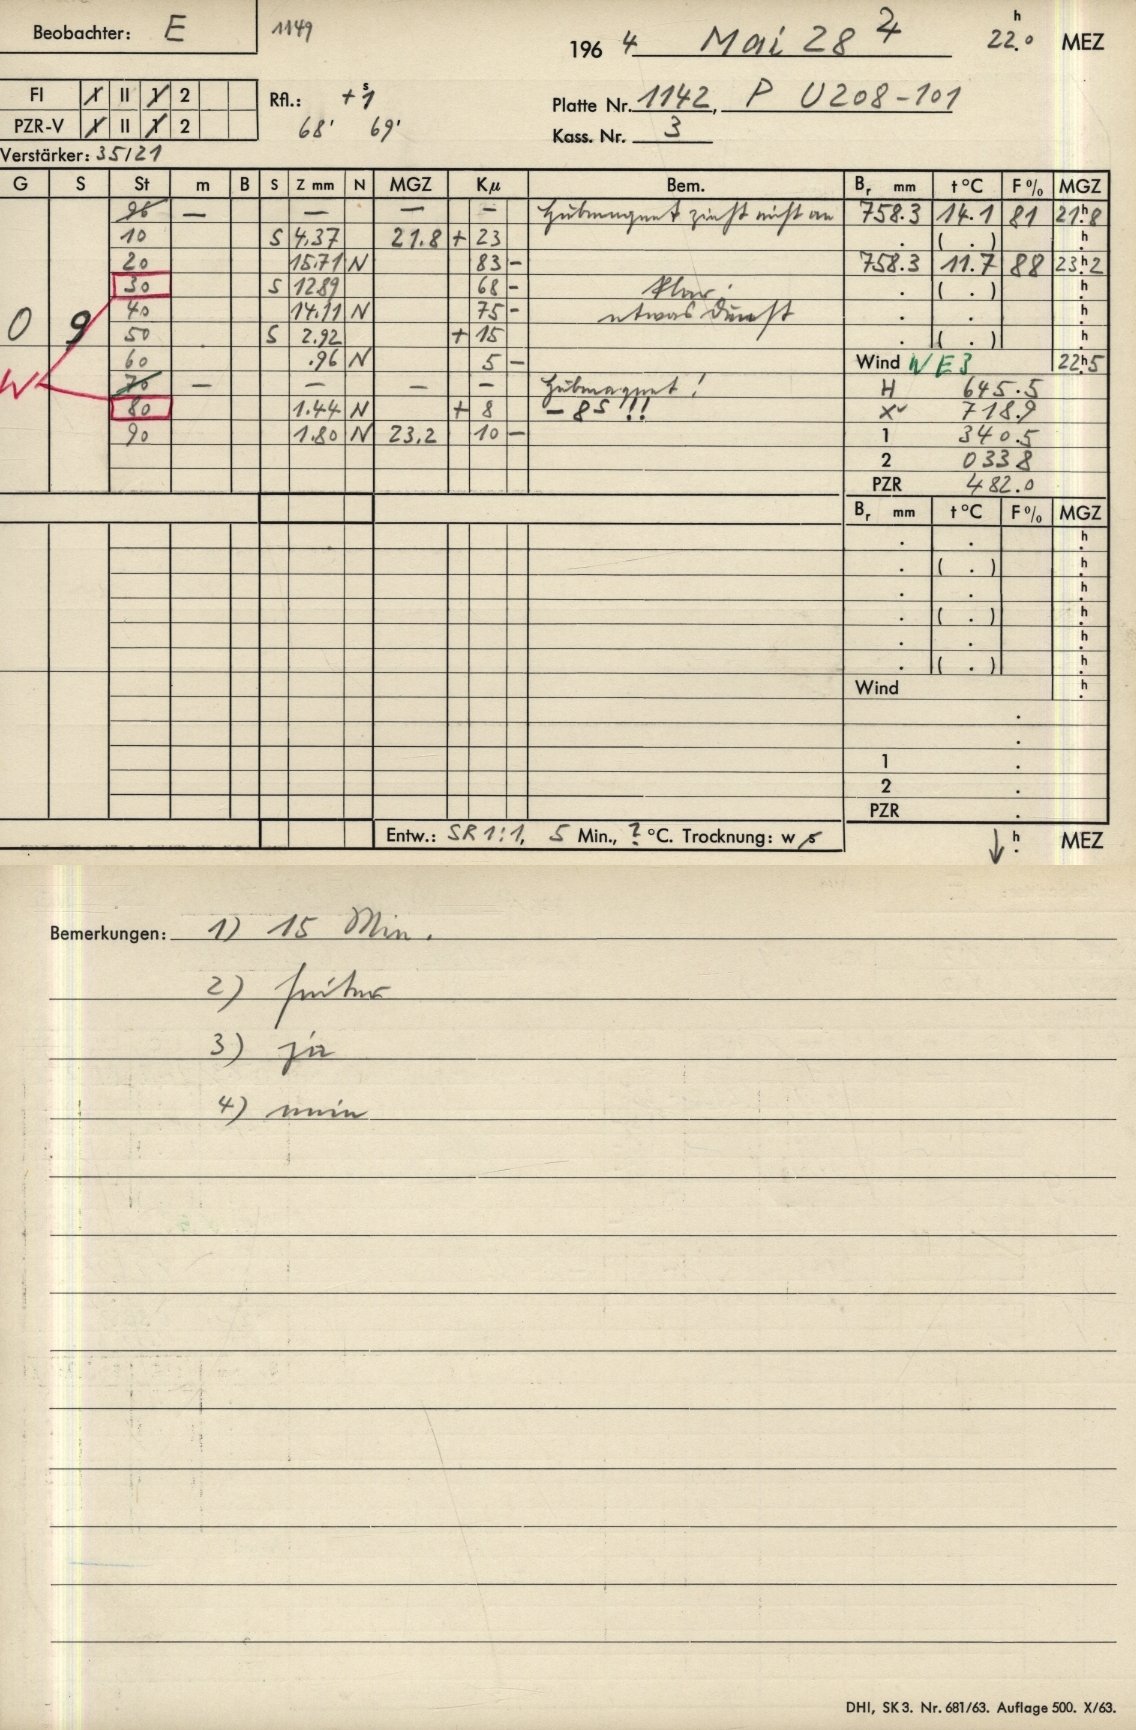 Beobachter: E 1149
1964 Mai 28 4 22.ʰ0 MEZ
FI I II 1 2
PZR-V I II 1 2
Rfl.: +ˢ1
68' 69'
Platte Nr. 1142, P U208-101
Kass. Nr. 3
Verstärker: 35/21
G S St m B S Z mm N MGZ Kμ Bem. Bᵣ mm t°C F% MGZ
96 — — — — Hubmagnet zieht nicht an 758.3 14.1 81 21ʰ8
10 S 4.37 21.8 + 23 . ( . ) ʰ.
20 15.71 N 83 – 758.3 11.7 88 23ʰ2
30 S 12.89 68 – klar. . ( . ) ʰ.
40 14.11 N 75 – etwas Dunst . ʰ.
0 9 50 S 2.92 + 15 ( . ) ʰ.
60 .96 N 5 – Wind WE3 22ʰ5
W 70 — — — — Hubmagnet! H 645.5
80 1.44 N + 8 – 8ˢ!! X 718.9
90 1.80 N 23.2 10 – 1 340.5
2 033 8
PZR 482.0
Bᵣ mm t°C F% MGZ
. . ʰ.
. ( . ) ʰ.
. . ʰ.
. ( . ) ʰ.
. . ʰ.
. ( . ) ʰ.
Wind ʰ.
.
.
1 .
2 .
PZR .
Entw.: SR 1:1, 5 Min., ? °C. Trocknung: w s ↓ ʰ. MEZ
Bemerkungen: 1) 15 Min.
2) heiter
3) ja
4) nein
DHI, SK 3. Nr. 681/63. Auflage 500. X/63.